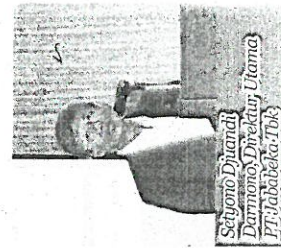 Setyono Djuandi
Darmono, Direktur Utama
PT Jababeka Tbk